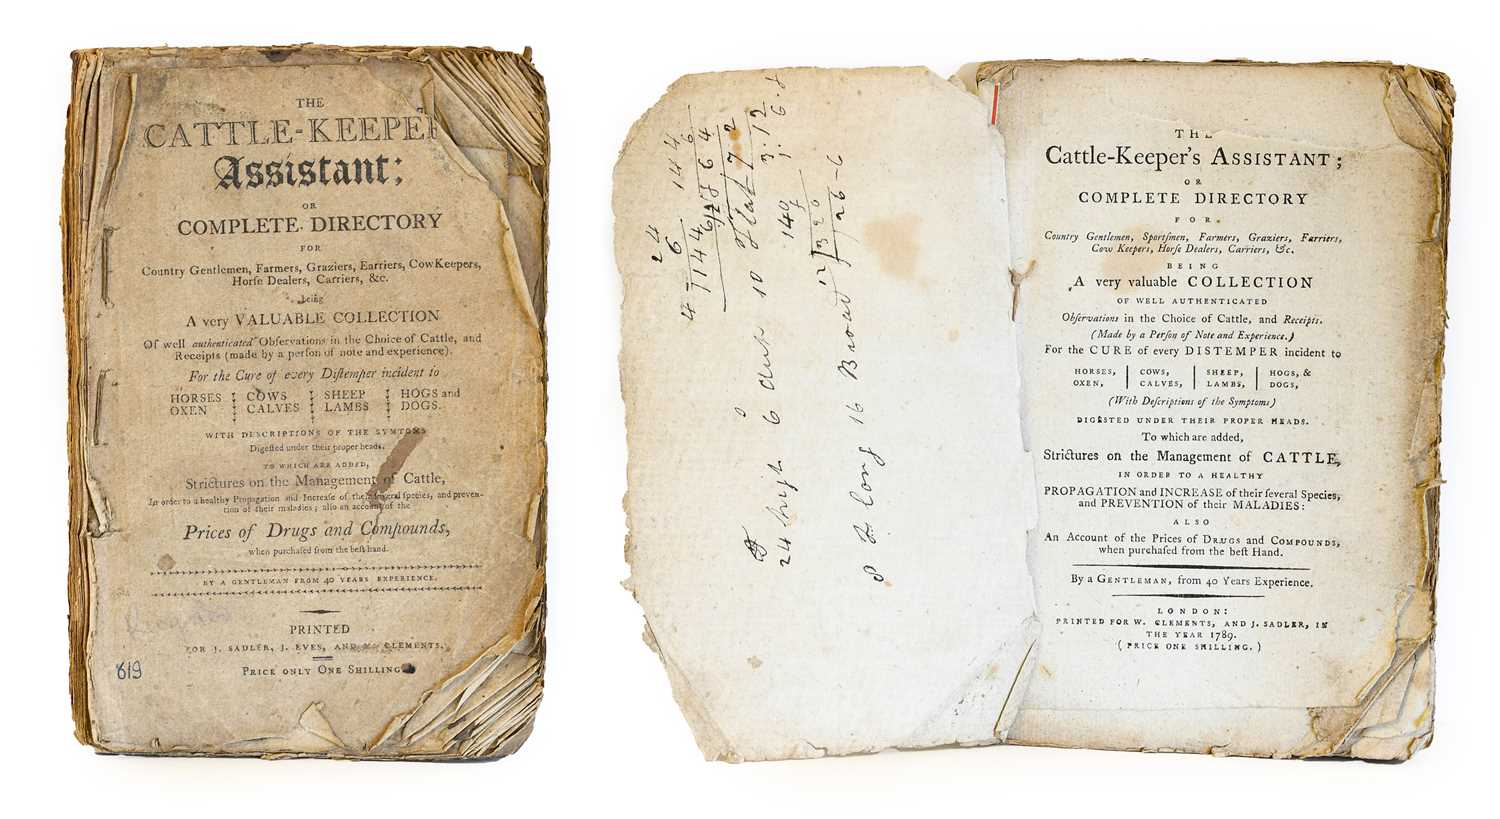 THE
CATTLE-KEEPER
Assistant;
OR
COMPLETE DIRECTORY
FOR
Country Gentlemen, Farmers, Graziers, Farriers, Cow Keepers,
Horſe Dealers, Carriers, &c.
being
A very VALUABLE COLLECTION
Of well authenticated Obſervations in the Choice of Cattle, and
Receipts (made by a perſon of note and experience).
For the Cure of every Diſtemper incident to
HORSES COWS SHEEP HOGS and
OXEN CALVES LAMBS DOGS.
WITH DESCRIPTIONS OF THE SYMTOMS
Digeſted under their proper heads.
TO WHICH ARE ADDED,
Strictures on the Management of Cattle,
In order to a healthy Propagation and Increaſe of their ſeveral ſpecies, and preven-
tion of their maladies; alſo an account of the
Prices of Drugs and Compounds,
when purchaſed from the beſt hand.
BY A GENTLEMAN FROM 40 YEARS EXPERIENCE.
PRINTED
FOR J. SADLER, J. EVES, AND W. CLEMENTS.
PRICE ONLY ONE SHILLING
619
24 high 6 out 10 Flat 17 2
8 F long 16 Broad
THE
Cattle-Keeper's ASSISTANT;
OR
COMPLETE DIRECTORY
FOR
Country Gentlemen, Sportſmen, Farmers, Graziers, Farriers,
Cow Keepers, Horſe Dealers, Carriers, &c.
BEING
A very valuable COLLECTION
OF WELL AUTHENTICATED
Obſervations in the Choice of Cattle, and Receipts.
(Made by a Perſon of Note and Experience.)
For the CURE of every DISTEMPER incident to
HORSES, COWS, SHEEP, HOGS, &
OXEN, CALVES, LAMBS, DOGS,
(With Deſcriptions of the Symptoms)
DIGESTED UNDER THEIR PROPER HEADS.
To which are added,
Strictures on the Management of CATTLE,
IN ORDER TO A HEALTHY
PROPAGATION and INCREASE of their ſeveral Species,
and PREVENTION of their MALADIES:
ALSO
An Account of the Prices of DRUGS and COMPOUNDS,
when purchaſed from the beſt Hand.
By a GENTLEMAN, from 40 Years Experience.
LONDON:
PRINTED FOR W. CLEMENTS, AND J. SADLER, IN
THE YEAR 1789.
(PRICE ONE SHILLING.)